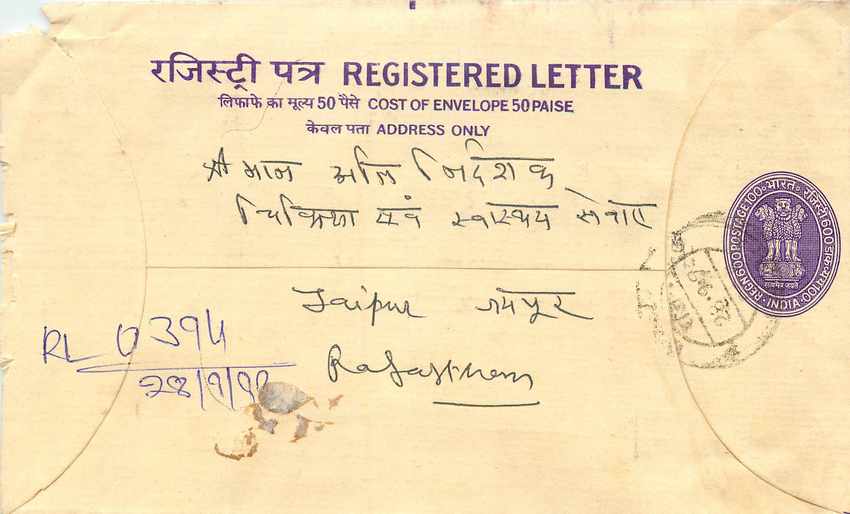 रजिस्ट्री पत्र REGISTERED LETTER
लिफाफे का मूल्य 50 पैसे COST OF ENVELOPE 50 PAISE
केवल पता ADDRESS ONLY
श्री मान अति निर्देशक
चिकित्सा एवं स्वास्थ्य सेवाए
REGN 600 POSTAGE 100 भारत रजिस्ट्री 600 डाक 100 INDIA
सत्यमेव जयते
Jaipur जयपुर
RL 0394
Rajasthan